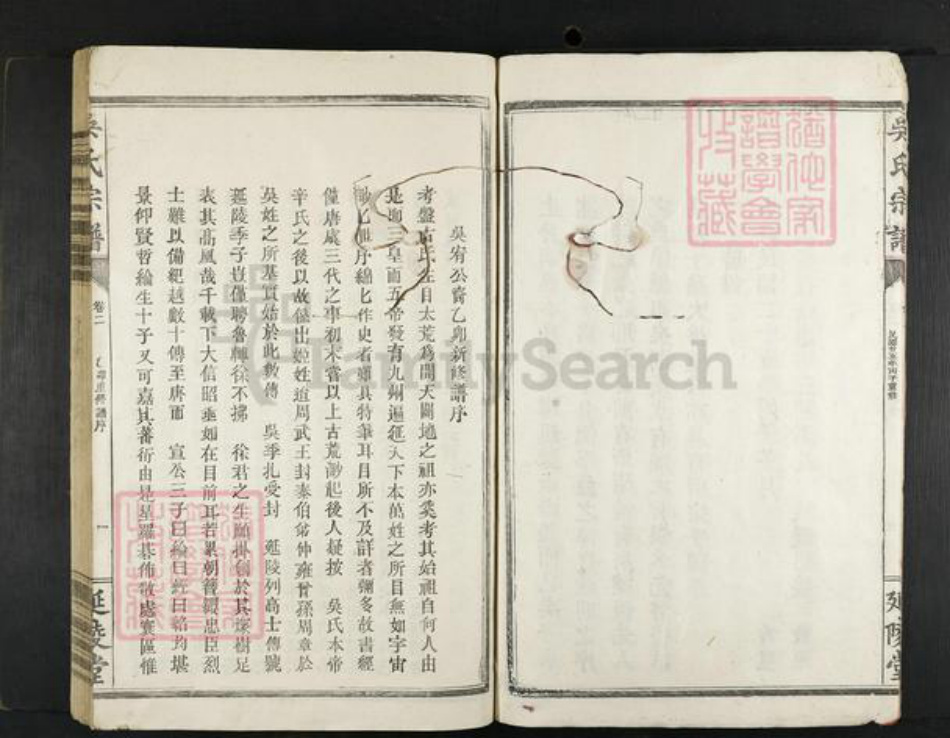 吳氏宗譜
民國廿五年丙子重修
延陵堂
吳宥公齋乙卯新修譜序
考盤古氏生自太荒為開天闢地之祖亦奚考其始祖自何人由
是迦三皇而五帝發有九州遍征天下本萬姓之所自無如宇宙
渺匕世序綿匕作史者雖具特筆耳目所不及詳者彌多故書經
僅唐虞三代之事初未嘗以上古荒渺起後人疑按 吳氏本帝
辛氏之後以故傑出姬姓迨周武王封泰伯弟仲雍曾孫周章於
吳姓之所基實始於此數傳 吳季扎受封 延陵列高士傳號
延陵季子豈僅聘魯轉徐不拂 徐君之生願掛劍於其塚樹足
表其高風哉千載下大信昭垂如在目前耳若累朝簪纓忠臣烈
士難以備紀越數十傳至唐而 宣公三子曰綸曰經曰絡均堪
景仰賢哲綸生十子又可嘉其蕃衍由是星羅棊佈散處寰區惟
吳氏宗譜
卷二
重修譜序
一
延陵堂
FamilySearch